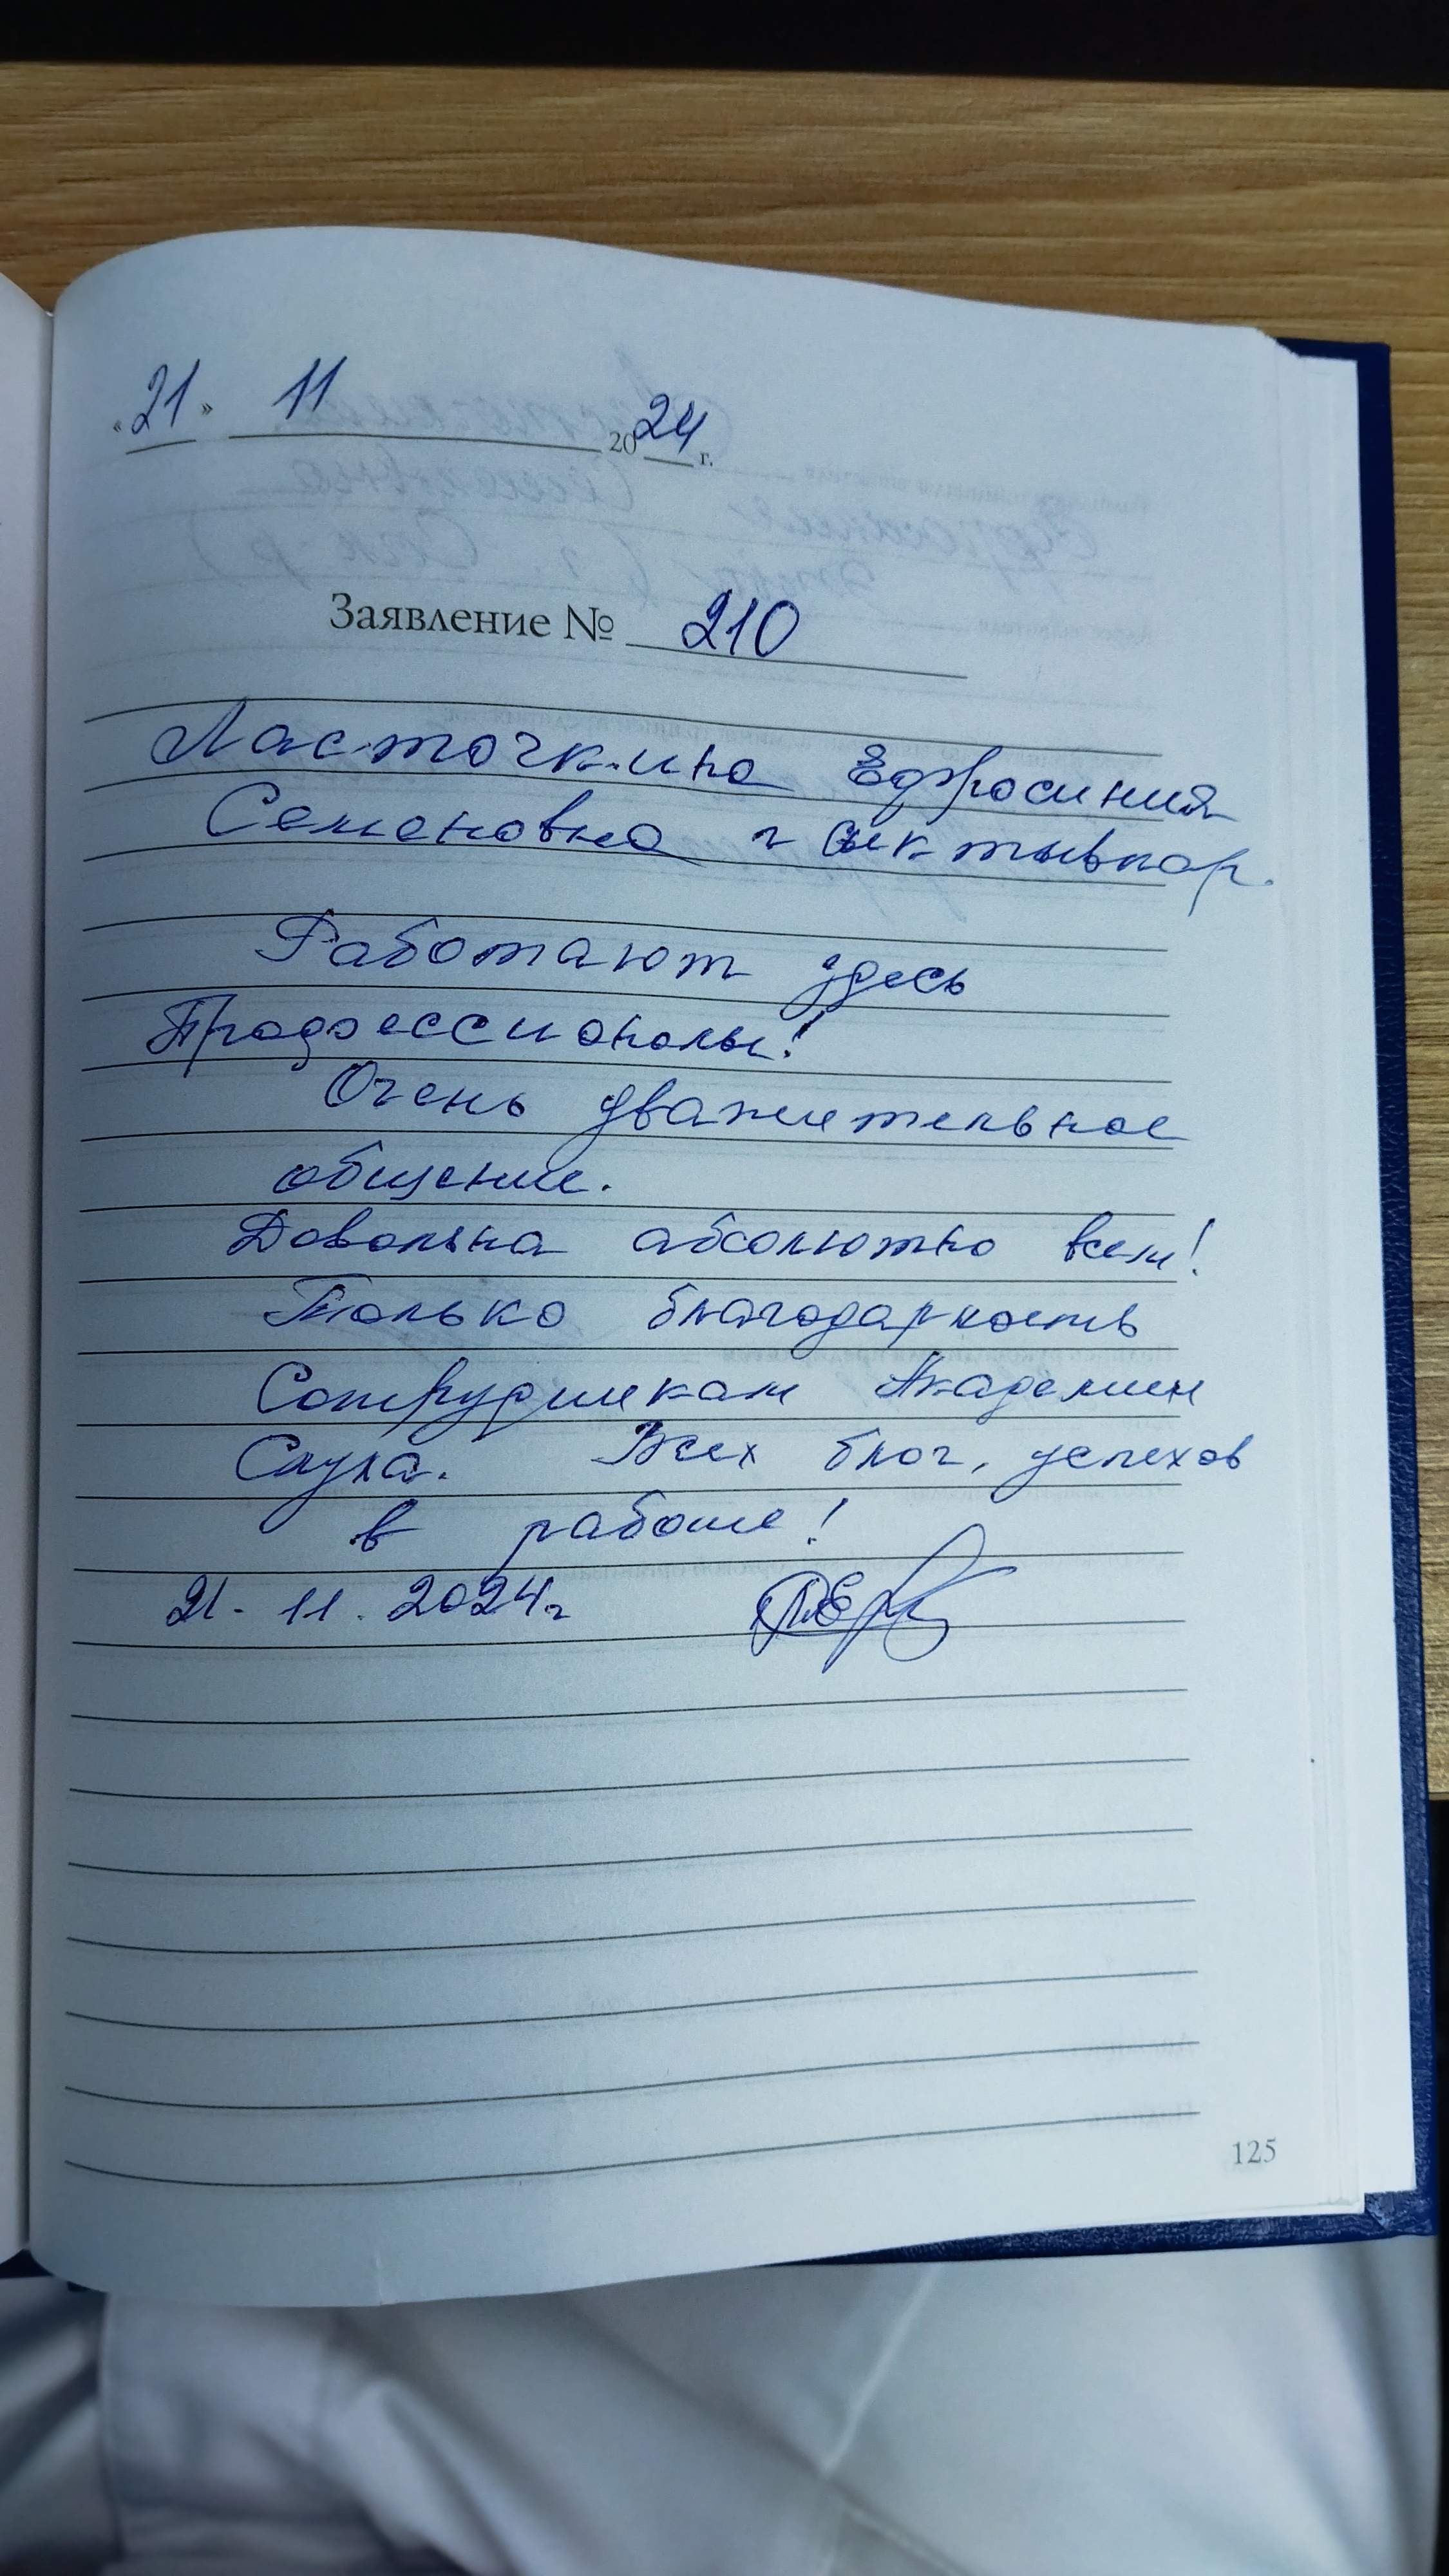 «21» 11 2024 г.
Заявление № 210
Ласточкина Ефросиния
Семеновна г Сыктывкар.
Работают здесь
Професcионалы!
Очень уважительное
общение.
Довольна абсолютно всем!
Только благодарность
Сотрудникам Академии
Слуха. Всех благ, успехов
в работе!
21. 11. 2024г
125